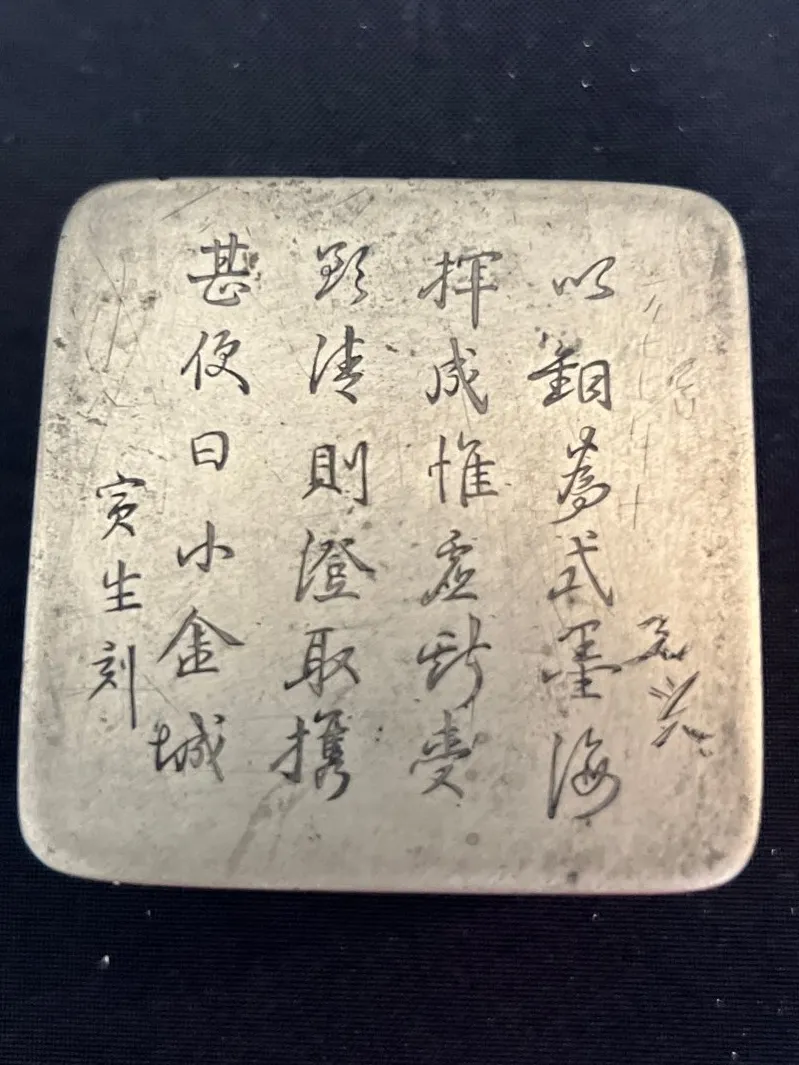 以銅為式墨海
揮成惟虛斯受
清則澄取攜
甚便曰小金城
寅生刻